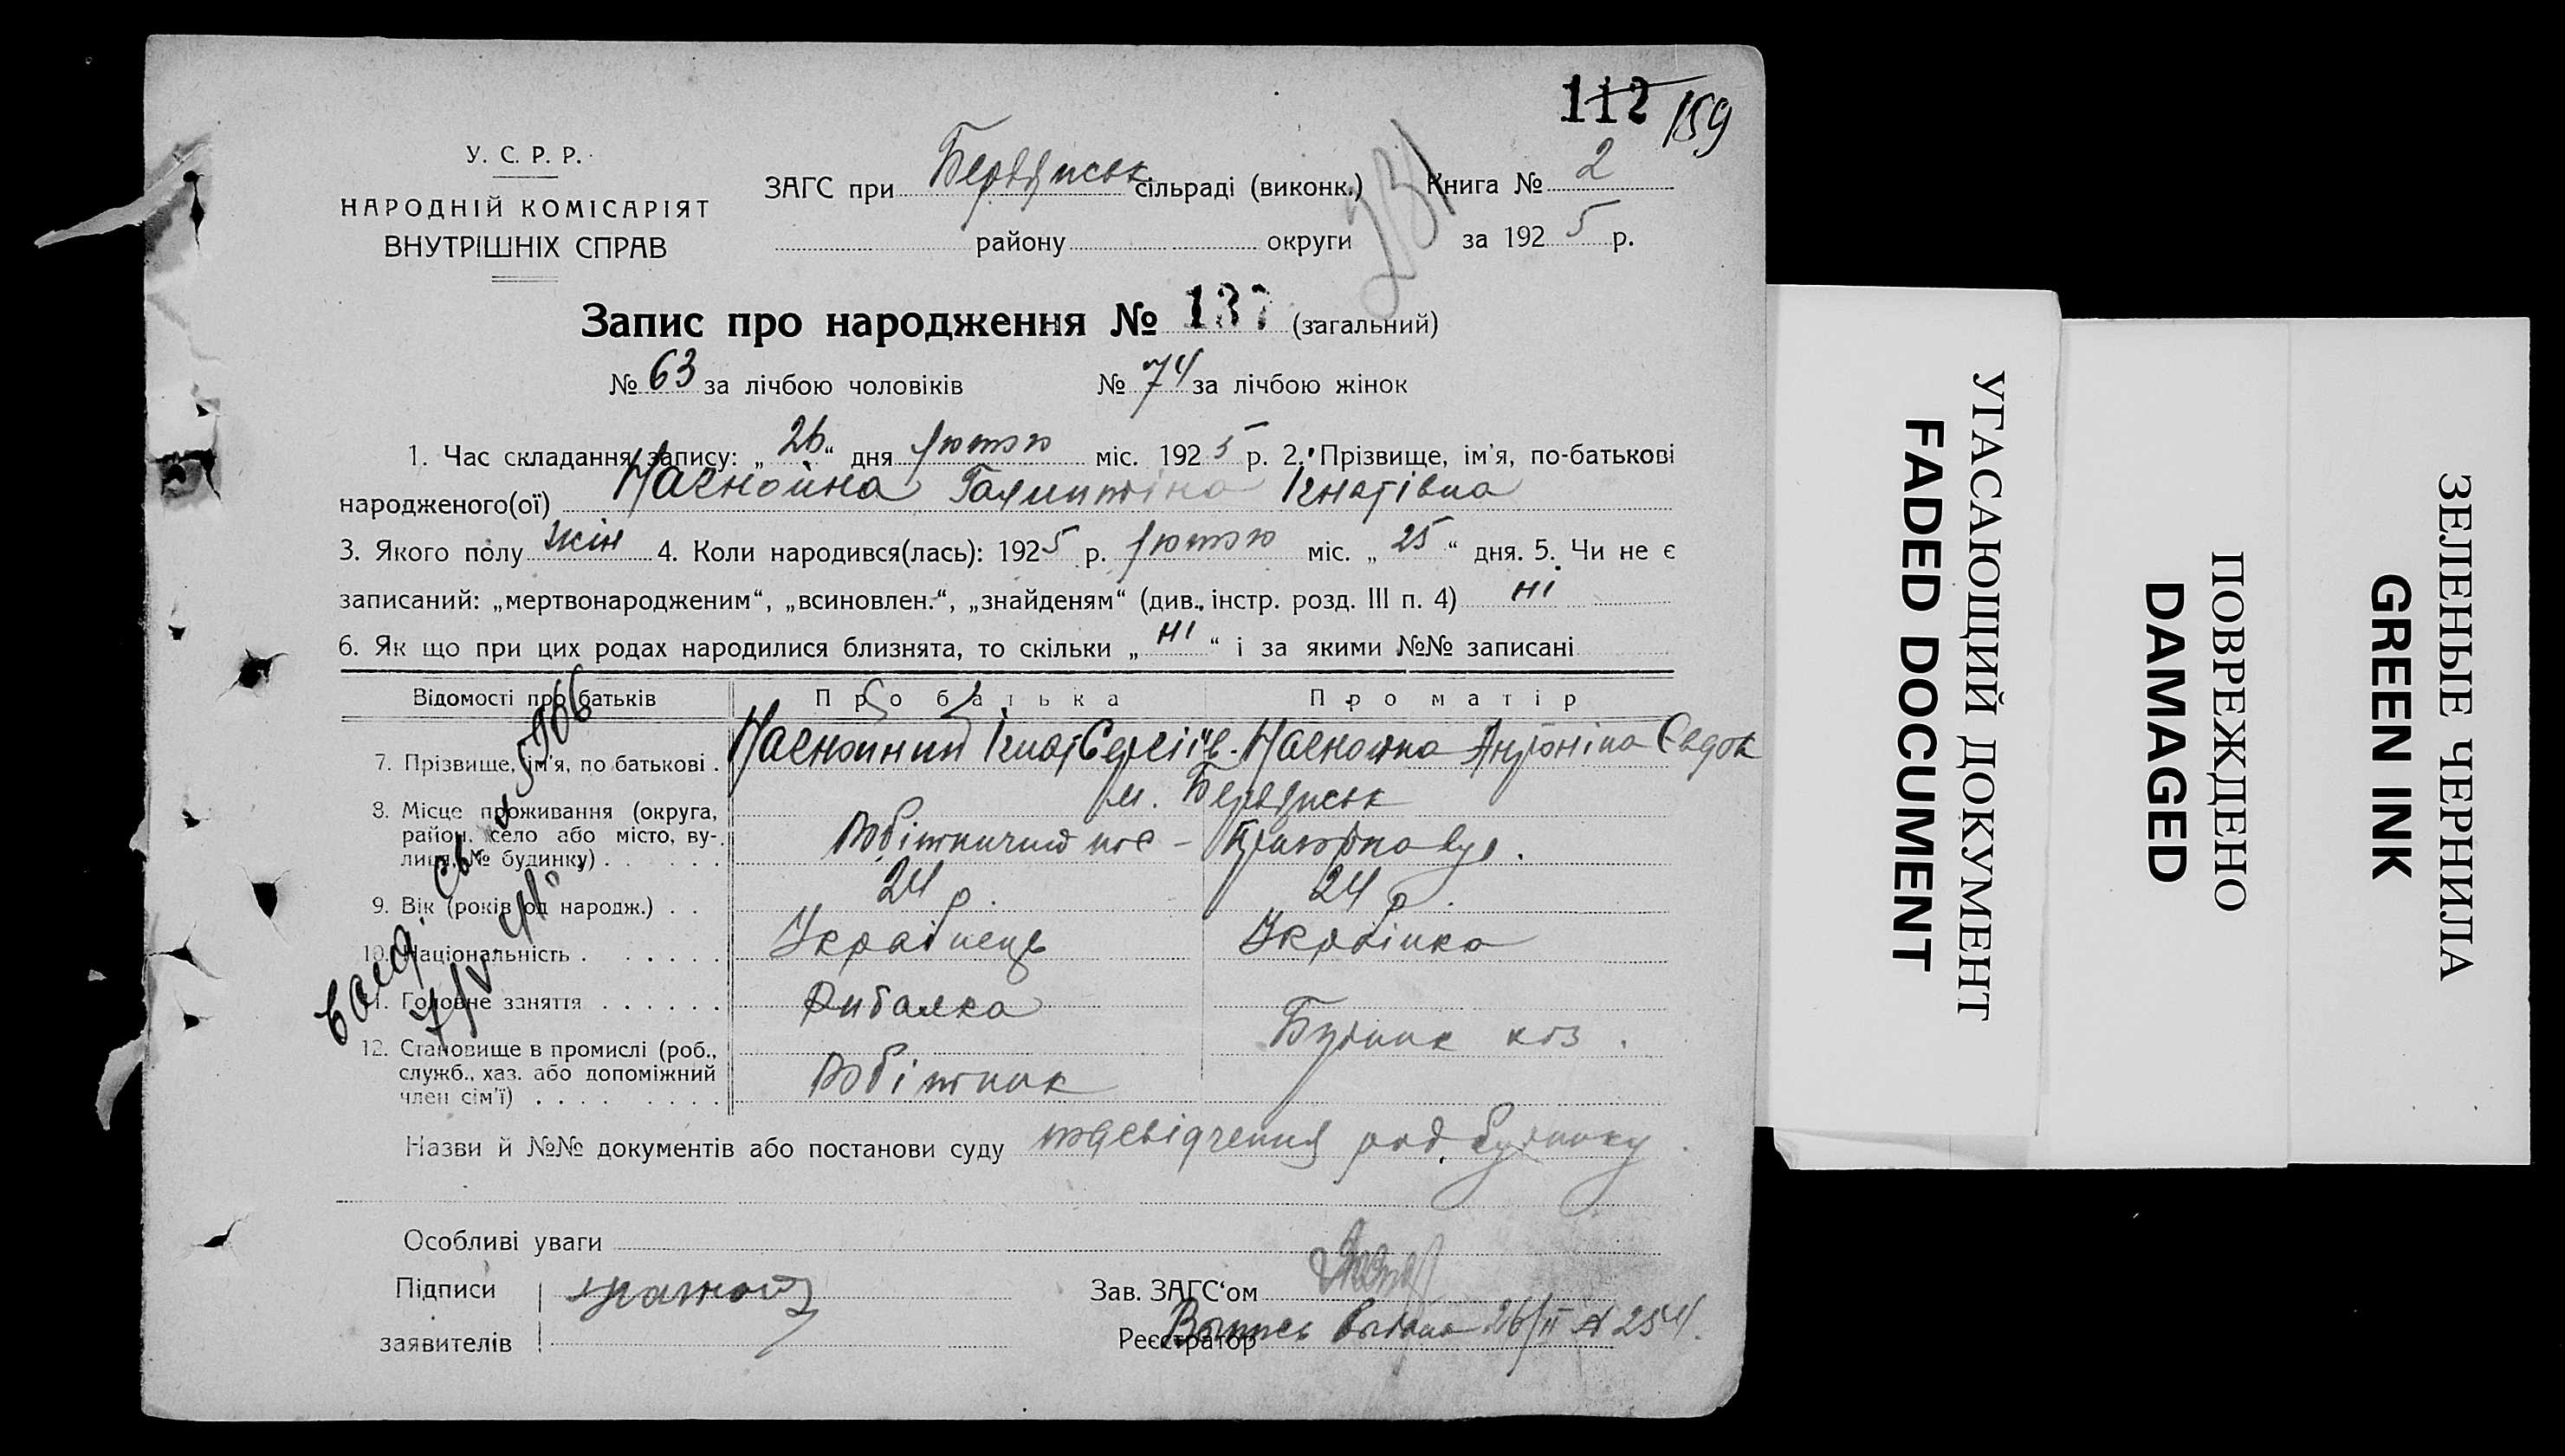 112 159
У. С. Р. Р.
НАРОДНІЙ КОМІСАРІЯТ
ВНУТРІШНІХ СПРАВ
ЗАГС при Бердянськ сільраді (виконк.)
району округи
Книга № 2
за 1925 р.
Запис про народження № 137 (загальний)
№ 63 за лічбою чоловіків № 74 за лічбою жінок
1. Час складання запису: „26“ дня лютого міс. 1925 р. 2. Прізвище, ім'я, по-батькові
народженого(ої) Ігнатівна
3. Якого полу жін 4. Коли народився(лась): 1925 р. лютого міс. „25“ дня. 5. Чи не є
записаний: „мертвонародженим“, „всиновлен.“, „знайденям“ (див., інстр. розд. III п. 4) ні
6. Як що при цих родах народилися близнята, то скільки „ні“ і за якими №№ записані
Відомості про батьків Про батька Про матір
7. Прізвище, ім'я, по батькові . Ігнат Сергіїв. Антоніна Євдок
8. Місце проживання (округа,
район, село або місто, ву-
лиця, № будинку) . . . . . .
м. Бердянськ
9. Вік (років од народж.) . . 24 р. 24 р.
10. Національність . . . . . Українець Українка
11. Головне заняття . . . . . . Рибалка
12. Становище в промислі (роб.,
служб., хаз. або допоміжний
член сім'ї) . . . . . . . .
Робітник
Назви й №№ документів або постанови суду посвідчення род. будинку
Особливі уваги
Підписи
заявителів
Зав. ЗАГС'ом
Реєстратор Выпись выдана 26/II № 254.
УГАСАЮЩИЙ ДОКУМЕНТ
FADED DOCUMENT
ПОВРЕЖДЕНО
DAMAGED
ЗЕЛЕНЫЕ ЧЕРНИЛА
GREEN INK